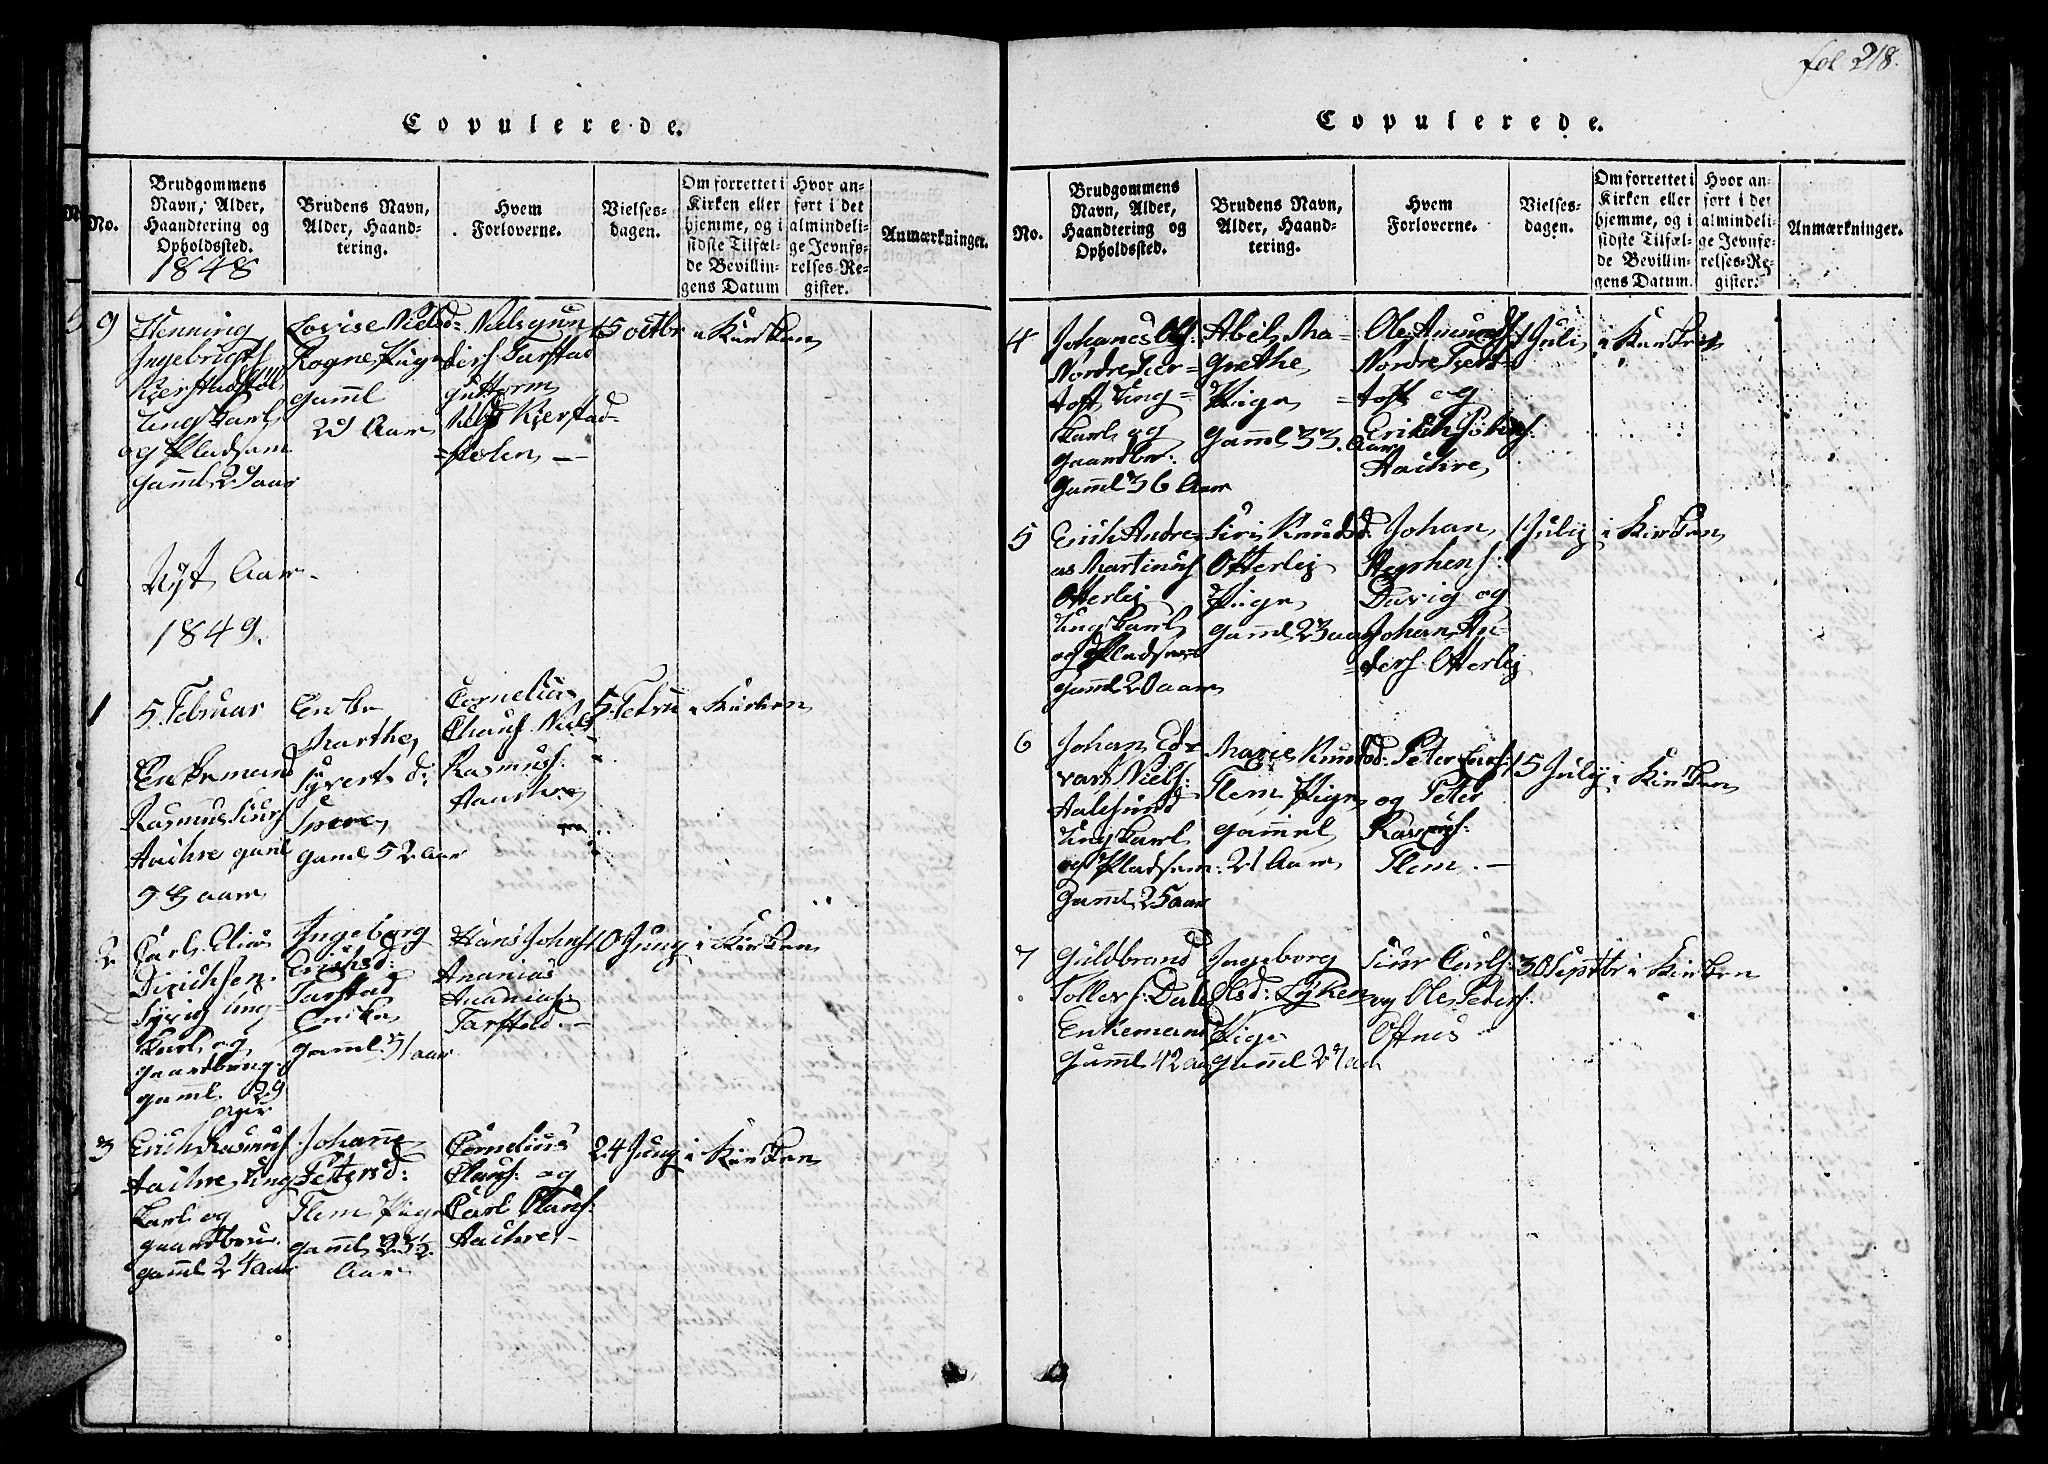 Copulerede.
No.
Brudgommens
Navn, Alder,
Haandtering og
Opholdssted.
1848
Brudens Navn,
Alder, Haand-
tering.
Hvem
Forloverne.
Vielses-
dagen.
Om forrettet i
Kirken eller
hjemme, og i
sidste Tilfæl-
de Bevillin-
gens Datum
Hvor an-
ført i det
almindeli-
ge Jevnfø-
relses-Re-
gister.
Anmærkninger.
9
Henning
Ingebrigts
Kierstad
Ungkarl
og Pladsem
gaml 24 aar
Lovise Nielsd
Rogne Pige
gaml
29 Aar
Niels
ders Tarstad
Guttorm
Niels Kierstad-
5 octbr
i Kirken
Nyt Aar
1849.
1
5. Februar
Enkemand
Rasmus Siurs
Aachre gaml
aar
Enke
Marthe
Syverts d:
gaml 52 aar
Cornelius
Claus Niels
Rasmus:
Aachre
5. Febru
i Kirken
2
Carl Elias
Dirichsen
Ung-
karl og
gaardbrug
gaml 29
aar
Ingeborg
Erichsd:
Tarstad
Enke
gaml 31 aar
Hans Johns
Ananias
Ananias:
Tarstad. -
10 Juny
i Kirken
3
Erich Rasmus
Aachre Ung
karl og
gaardbru
gaml 24 aar
Johanne
Petersd:
Flem Pige
gaml 23½
Aar
Cornelius
Claus: og
Carl Claus:
Aachre -
24 Juny
i Kirken
fol. 218.
Copulerede.
No.
Brudgommens
Navn, Alder,
Haandtering og
Opholdssted.
Brudens Navn,
Alder, Haand-
tering.
Hvem
Forloverne.
Vielses-
dagen.
Om forrettet i
Kirken eller
hjemme, og i
sidste Tilfæl-
de Bevillin-
gens Datum.
Hvor an-
ført i det
almindeli-
ge Jevnfø-
relses-Re-
gister.
Anmærkninger.
4
Johanes Ols:
Nordre Tier-
toft Ung-
karl og
gaardbr:
gaml 36 Aar
Abel Ma-
grethe
Pige
gaml 33. Aar
Ole Amunds
Nordre Tiert-
toft og
Erich
Aachre
1 Juli
i Kirken
5
Erich Andre-
as Martinus
Otterlei
Ungkarl
og Pladsem
gaml 20 aar
Siri Knudsd.
Otterlei
Pige
gaml 23 aar
Johan
Stephens:
Davig og
Johan An-
ders: Otterlei
1 July
i Kirken
6
Johan Ed-
vart Niels:
Aalesund
Ungkarl
og Pladsem:
Gaml 25 aar
Marie Knudsd:
Flem Pige
gammel
21 Aar
Peter Erichs:
og Peter
Rasmus:
Flem. -
15 July
i Kirken
7
Guldbrand
Tollers: Dale
Enkemand
Gaml 42 aar
Ingeborg
Olsd: Lyken
Pige
gaml 24 aar
Siur Carls:
og Ole Peters:
Oftnes
30 Septbr
i Kirken